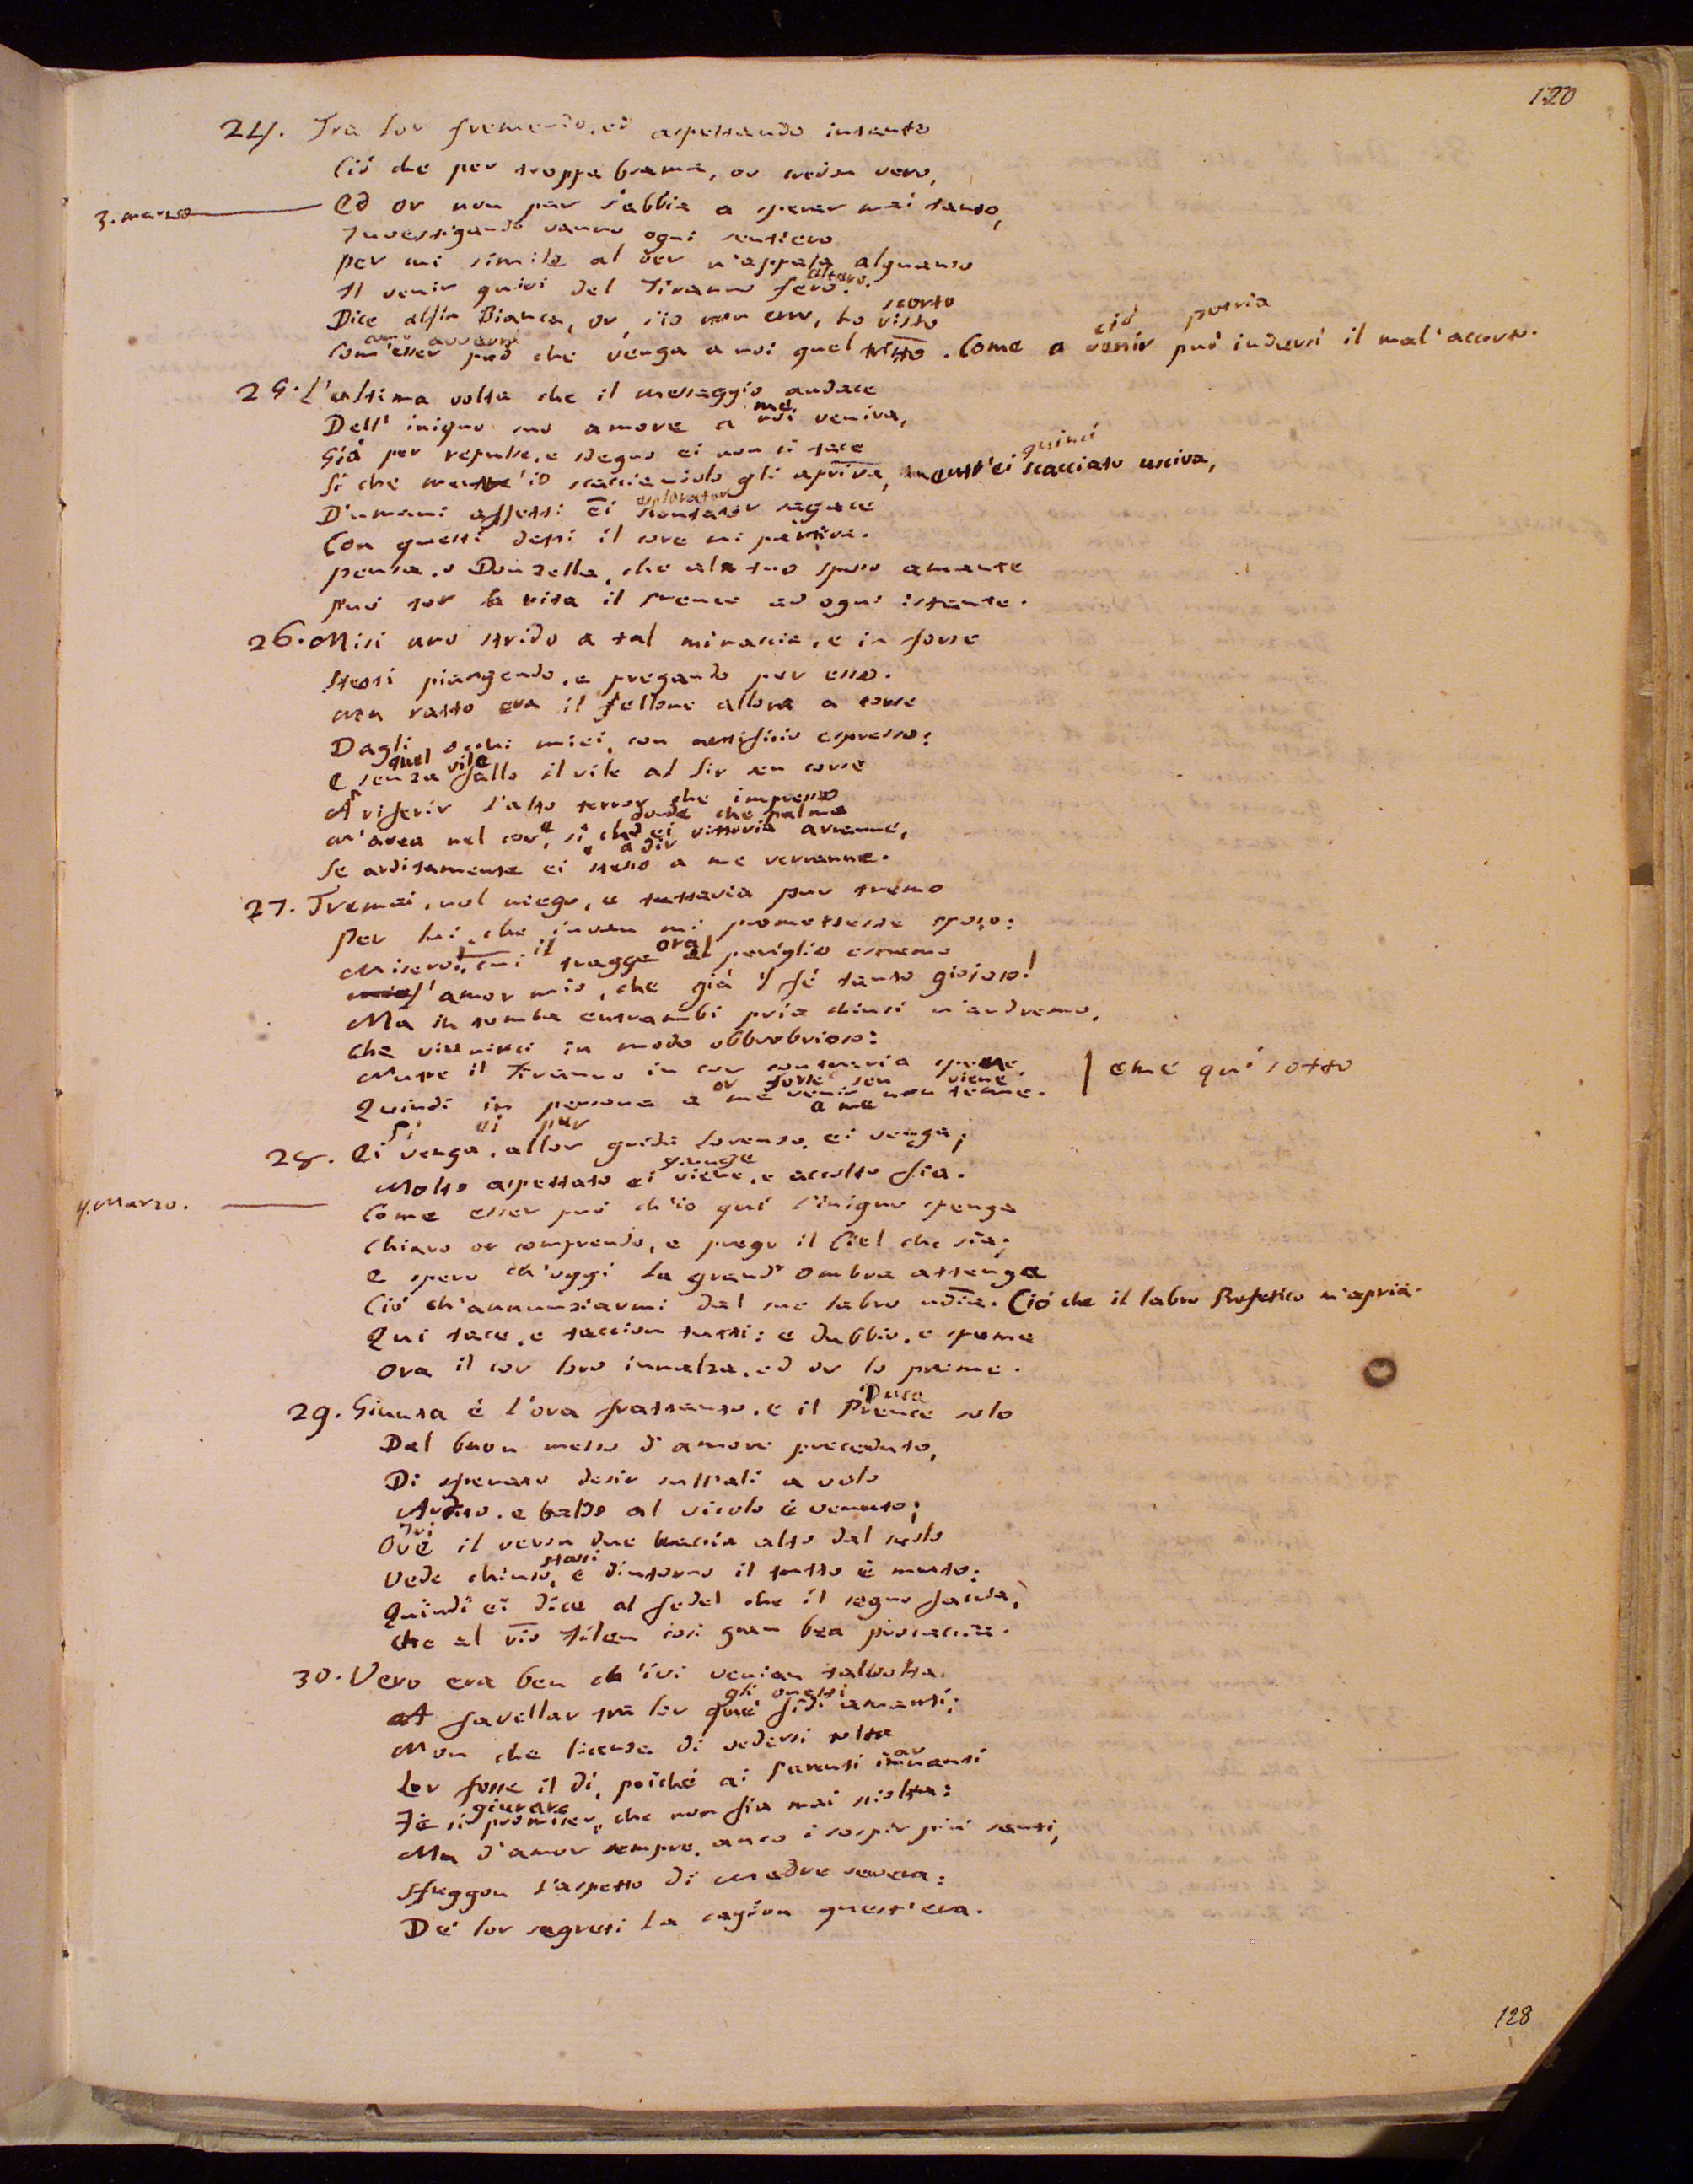 120
24. Tra lor fremendo, ed aspettando intanto
Ciò che per troppa brama, or credon vero,
3. marzo Ed or non par s'abbia a sperar mai tanto,
Investigando vanno ogni sentiero
per cui simile al ver n'appaja alquanto
altero.
Il venir quivi del Tiranno fero.
scorto
Dice alfin Bianca, or, s'io non erro, ho visto
come avverrà ciò potria
Com'esser può che venga a noi quel tristo. Come a venir può indursi il mal'accorto.
25. L'ultima volta che il messaggio audace
me
Dell'iniquo suo amore a noi veniva,
Già per repulse, e sdegno ei non si tace
quinci
Sì che mentre'io scacciandolo gli apriva, quest'ei scacciato usciva,
esplorator
D'umani affetti ei sagace
Con questi detti il core mi partiva.
pensa, o Donzella, che al tuo sposo amante
può tor la vita il prence ad ogni istante.
26. Misi uno strido a tal minaccia, e in forse
Stetti piangendo, e pregando per esso.
ma ratto era il fellone allora a torse
Dagli occhi miei, con artificio espresso:
quel vile
E senza fallo il vile al Sir sen corse
A riferir l'alto terror che impresso
donde che palma
m'avea nel core, sì ched ei vittoria avranne,
a dir
Se arditamente ei stesso a me verranne.
27. Tremai, nol niego, e tuttavia pur tremo
Per lui, che invan mi promettesse sposo:
il ora
Misero! cui tragge al periglio estremo
l'amor mio, che già il fé tanto giojoso!
Ma in tomba entrambi pria chiusi n'andremo,
Che viver in modo obbrobrioso:
Nutre il Tiranno in cor contraria spene, | eme quì sotto
or forse sen viene
Quindi in persona a me venir non teme.
a me
Sì ei pur
28. Ei venga, allor grida Lorenzo, ei venga;
giunge
Molto aspettato ei viene, e accolto fia.
4. Marzo. Come esser può ch'io quì l'iniquo spenga
Chiaro or comprendo, e prego il Ciel che sia;
E spero ch'oggi la grand'ombra attenga
Ciò ch'annunziarmi dal suo labro udia. Ciò che il labro Profetico n'apria.
Qui tace, e taccion tutti: e dubbio, e speme
Ora il cor loro innalza, ed or lo preme.
Duca
29. Giunta è l'ora frattanto, e il Prence solo
Dal buon messo d'amore preceduto,
Di sfrenato desir sull'ali a volo
Ardito, e baldo al vicolo è venuto;
Ivi
Ove il veron due braccia alto dal suolo
stassi
Vede chiuso, e dintorno il tutto è muto:
Quindi ei dice al fedel che il segno faccia,
che al rio Filen così gran bea procaccia.
30. Vero era ben ch'ivi venian talvolta
gli onesti
A favellar tra lor que' fidi amanti;
Non che licenza di vedersi tolta
av
Lor fosse il dì, poiché ai Parenti innanti
giurare
Fé si promiser, che non fia mai sciolta:
Ma d'amor sempre, anco i sospir più santi,
Sfuggon l'aspetto di Madre severa:
De' lor segreti la cagion quest'era.
128